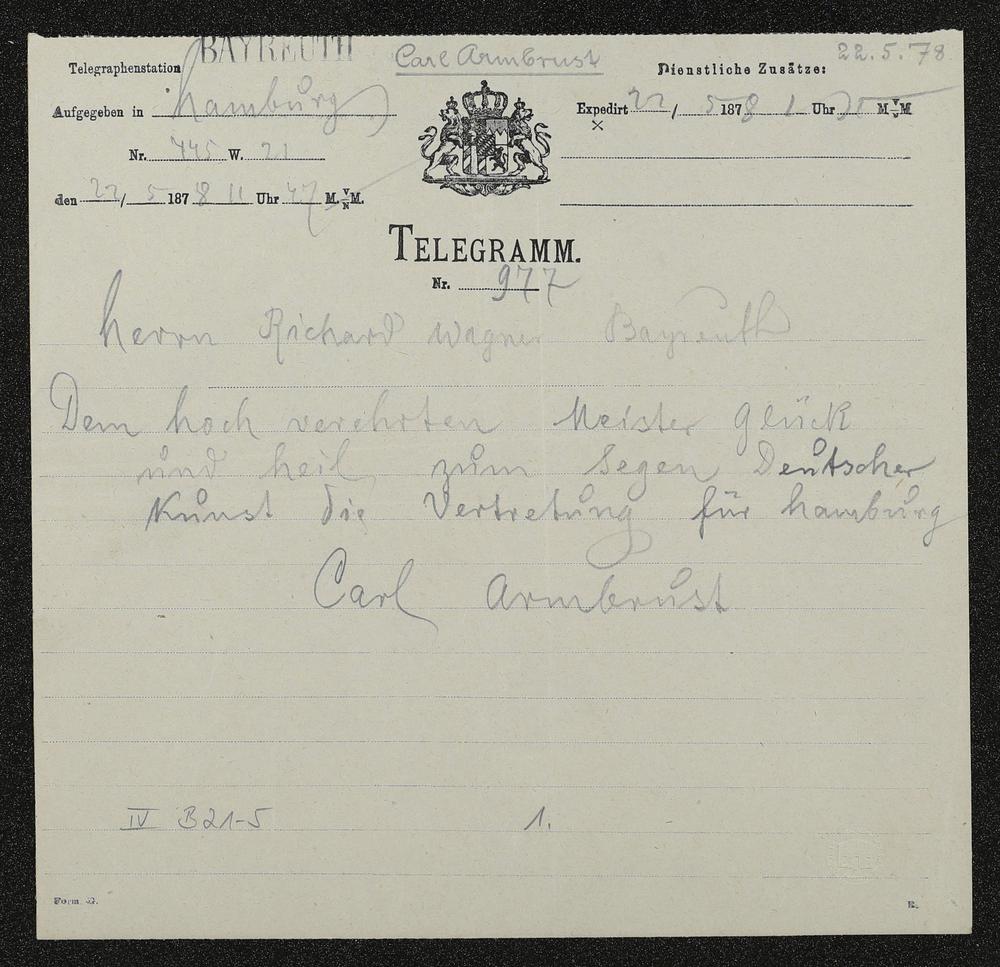 BAYREUTH
Carl Armbrust
22.5.78
Telegraphenstation
Dienstliche Zusätze:
Aufgegeben in Hamburg
Expedirt 22/5 1878 1 Uhr M. V/N M
Nr. 445 W. 21
den 22/5 1878 11 Uhr 47 M. V/N M.
TELEGRAMM.
Nr. 977
Herrn Richard Wagner Bayreuth
Dem hoch verehrten Meister Glück
und heil zum Segen Deutscher
Kunst die Vertretung für hamburg
Carl Armbrust
IV B21-5 1.
Form.
R.